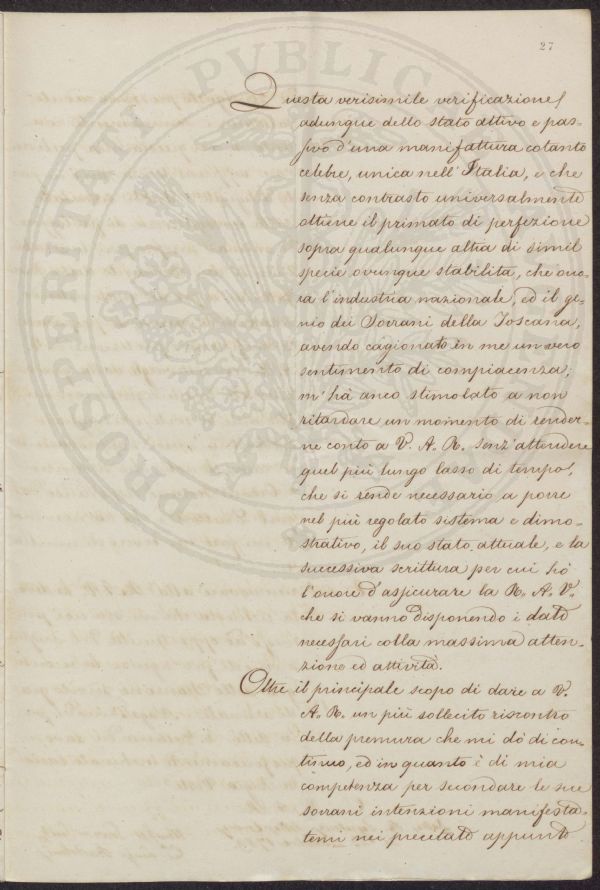 27
Questa verisimile verificazione
adunque dello stato attivo e pas=
sivo d'una manifattura cotanto
celebre, unica nell'Italia, e che
senza contrasto universalmente
ottiene il primato di perfezione
sopra qualunque altra di simil
specie ovunque stabilita, che ono=
ra l'industria nazionale, ed il ge=
nio dei Sovrani della Toscana,
avendo cagionato in me un vero
sentimento di compiacenza;
m'hà anco stimolato a non
ritardare un momento di render=
ne conto a V. A. R. senz'attendere
quel più lungo lasso di tempo,
che si rende necessario a porre
nel più regolato sistema e dimo=
strativo, il suo stato attuale, e la
successiva scrittura per cui hò
l'onore d'assicurare la R. A. V.
che si vanno disponendo i dati
necessari colla massima atten=
zione ed attività.
Oltre il principale scopo di dare a V.
A. R. un più sollecito riscontro
della premura che mi dò di con=
tinuo, ed in quanto è di mia
competenza per secondare le sue
sovrani intenzioni manifesta=
temi nei precitati appunti
PROSPERITATI PUBLIC